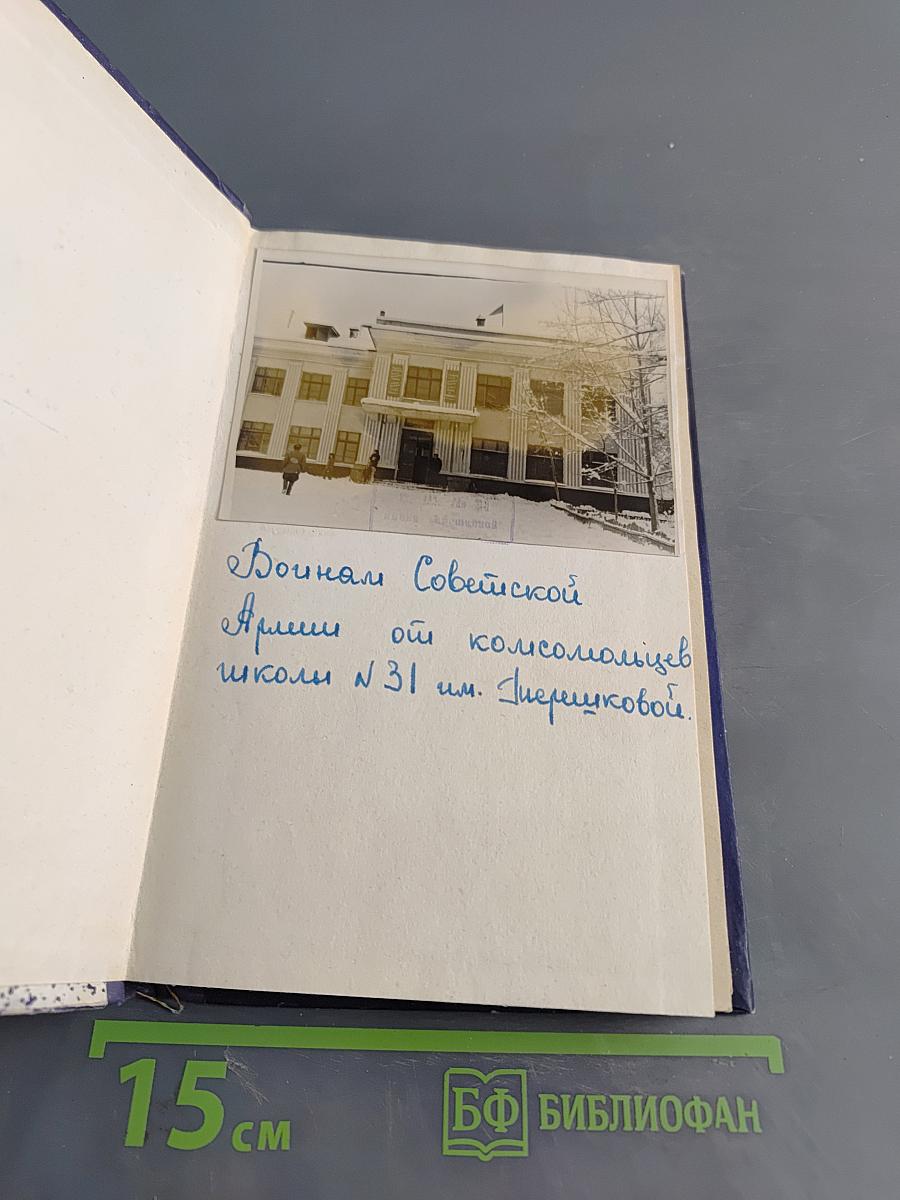 Воинам Советской
Армии от комсомольцев
школы №31 им. Терешковой.
15 см
БФ БИБЛИОФАН